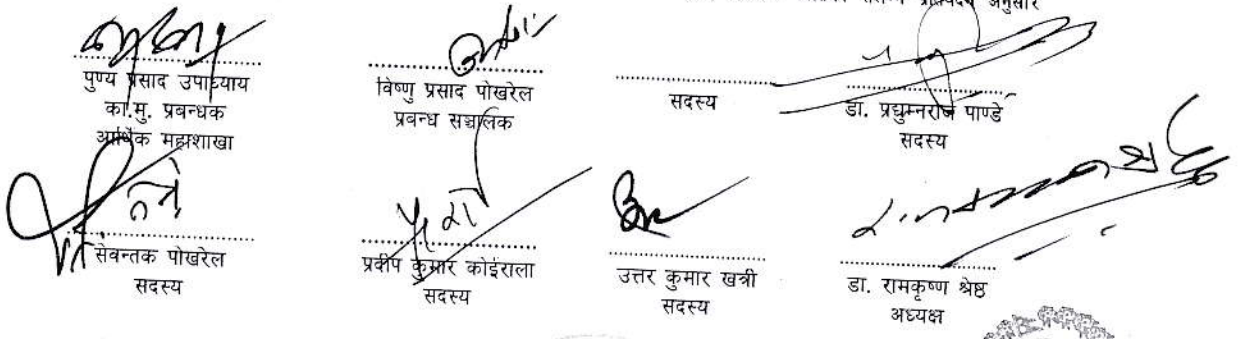 अनुसार
पुण्य प्रसाद उपाध्याय
का.मु. प्रबन्धक
आर्थिक महाशाखा
विष्णु प्रसाद पोखरेल
प्रबन्ध सञ्चालक
सदस्य
डा. प्रद्युम्नराज पाण्डे
सदस्य
सेवन्तक पोखरेल
सदस्य
प्रदीप कुमार कोइराला
सदस्य
उत्तर कुमार खत्री
सदस्य
डा. रामकृष्ण श्रेष्ठ
अध्यक्ष